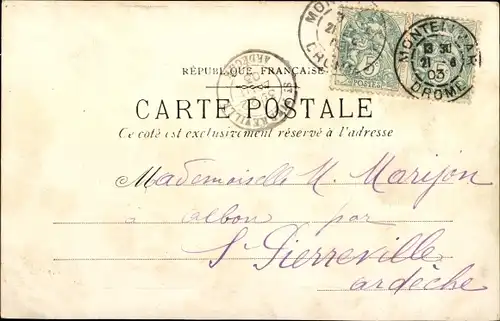 RÉPUBLIQUE FRANÇAISE
CARTE POSTALE
Ce côté est exclusivement réservé à l'adresse
MONTELIMAR
13 30
21 6
03
DROME
5 5
POSTES
ARDÈCHE
Mademoiselle M. Marijon
à albon par
St Pierreville
ardèche